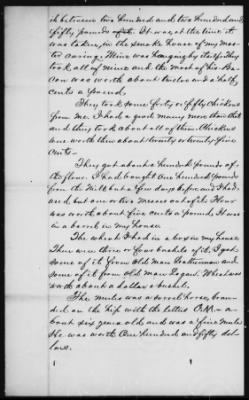 between two hundred and two hundred and
fifty pounds of it. It was, at the time it
was taken, in the smoke house of my mas-
ter during. Mine was hanging by itself. They
took all of mine and the most of his. Ba-
con was worth about twelve and a half
cents a pound.
They took some forty or fifty chickens
from me. I had a good many more than that
and they took about all of them. Chickens
were worth then about twenty or twenty five
cents.
They got about a hundred pounds of
the flour. I had bought one hundred pounds
from the Mill but a few days before and I had
used but one or two messes out of it. Flour
was worth about five cents a pound. It was
in a barrel in my house.
The wheat I had in a box in my house.
There was three or four bushels of it. I got
some of it from old man and
some of it from old man Logan. Wheat was
worth about a dollar a bushel.
The mule was a sorrel horse, bran-
ded on the hip with the letters O.K. - a-
bout six years old and was a fine mule.
He was worth One hundred and fifty dol-
lars.